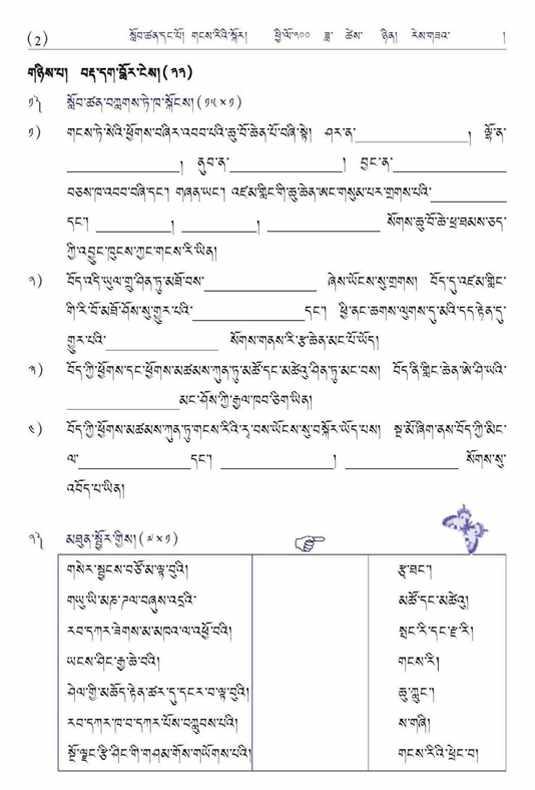 (2) སློབ་ཚན་དང་པོ། གངས་རིའི་སྐོར། ཕྱི་ལོ་༢༠༠ ཟླ་ ཚེས་ ཉིན། རེས་གཟའ་ །
གཉིས་པ། བརྡ་དག་སྦྱོར་ངེས། (༢༢)
༡༽ སློབ་ཚན་བཀླགས་ཏེ་ཁ་སྐོངས། (༡༥×༡)
༡) གངས་ཏེ་སེའི་ཕྱོགས་བཞིར་འབབ་པའི་ཆུ་བོ་ཆེན་པོ་བཞི་སྟེ། ཤར་ན་ ། ལྷོ་ན་
། ནུབ་ན་ ། བྱང་ན་
བཅས་ཁ་འབབ་བཞི་དང་། གཞན་ཡང་། འཛམ་གླིང་གི་ཆུ་ཆེན་ཨང་གསུམ་པར་གྲགས་པའི་
དང་། ། ། སོགས་ཆུ་བོ་ཆེ་ཕྲ་ཐམས་ཅད་
ཀྱི་འབྱུང་ཁུངས་ཀྱང་གངས་རི་ཡིན།
༢) བོད་འདི་ཡུལ་གྲུ་ཤིན་ཏུ་མཐོ་བས་ ཞེས་ཡོངས་སུ་གྲགས། བོད་དུ་འཛམ་གླིང་
གི་རི་བོ་མཐོ་ཤོས་སུ་གྱུར་པའི་ དང་། ཕྱི་ནང་ཆགས་ལུགས་དུ་མའི་དད་རྟེན་དུ་
གྱུར་པའི་ སོགས་གནས་རི་རྩ་ཆེན་མང་པོ་ཡོད།
༣) བོད་ཀྱི་ཕྱོགས་དང་ཕྱོགས་མཚམས་ཀུན་ཏུ་མཚོ་དང་མཚེའུ་ཤིན་ཏུ་མང་བས། བོད་ནི་གླིང་ཆེན་ཨེ་ཤི་ཡའི་
མང་ཤོས་ཀྱི་རྒྱལ་ཁབ་ཅིག་ཡིན།
༤) བོད་ཀྱི་ཕྱོགས་མཚམས་ཀུན་ཏུ་གངས་རིའི་ར་བས་ཡོངས་སུ་བསྐོར་ཡོད་པས། སྔ་མོ་ཞིག་ནས་བོད་ཀྱི་མིང་
ལ་ དང་། ། སོགས་སུ་
འབོད་པ་ཡིན།
༢༽ མཐུན་སྦྱོར་གྱིས། (༧×༡)
གསེར་སྦྱངས་བཙོ་མ་ལྟ་བུའི། རྩྭ་ཐང་།
གཡུ་ཡི་མཎྜལ་བཞུས་འདྲའི་ མཚོ་དང་མཚེའུ།
རབ་དཀར་ཟེགས་མ་མཁའ་ལ་འཕྱོ་བའི། སྤང་རི་དང་རྫ་རི།
ཡངས་ཤིང་རྒྱ་ཆེ་བའི། གངས་རི།
ཤེལ་གྱི་མཆོད་རྟེན་ཚར་དུ་དངར་བ་ལྟ་བུའི། ཆུ་ཀླུང་།
རབ་དཀར་ཁ་བ་དཀར་པོས་བཀླུབས་པའི། ས་གཞི།
སྔོ་ལྗང་རྩི་ཤིང་གི་གཤམ་གོས་གཡོགས་པའི། གངས་རིའི་ཕྲེང་བ།